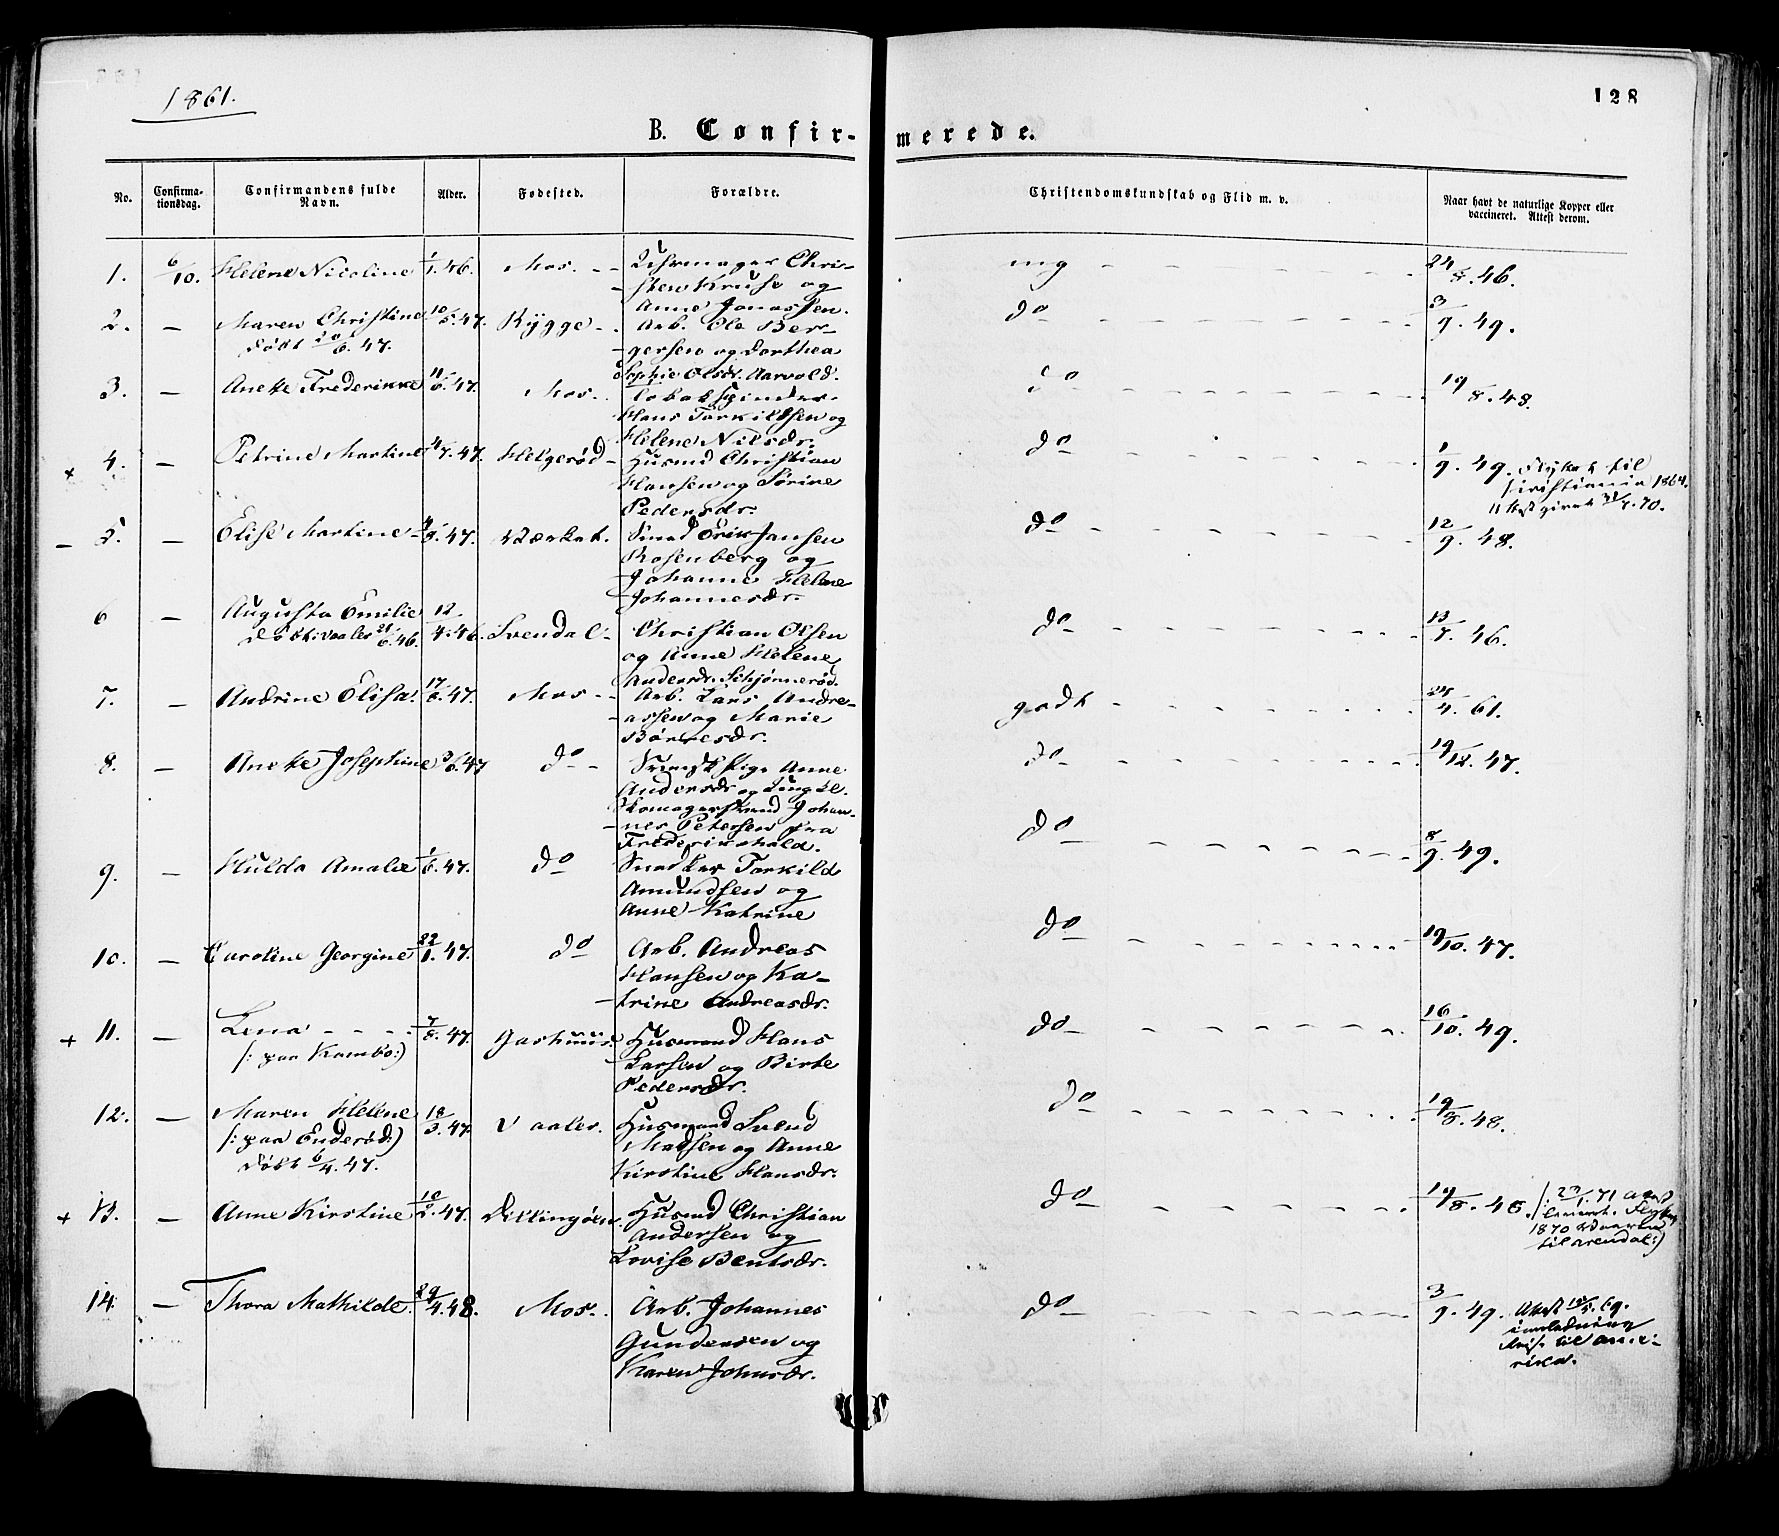 1861.
128
B. Confirmerede.
No.
Confirmationsdag.
Confirmandens fulde Navn.
Alder.
Fødested.
Forældre.
Christendomskundskab og Flid m. v.
Naar havt de naturlige Kopper eller vaccineret. Attest derom.
1. 6/10. Helene Nicoline 1/1.46. Mos. Uhrmager Chri-
sten Kruse og
Anne Jonassen. mg 24/5.46.
2. — Maren Christine 10/5.47. Rygge Arb. Ole Ber-
døbt 20/6.47. gersen og Dorthea
Sophie Olsdr. Aarvold. do 3/9.49.
3. — Anete Frederikke 11/6.47. Mos. Tobakspinder
Hans Torkildsen og
Helene Nilsdr. do 19/8.48.
+ 4. — Petrine Martine 4/7.47. Helgerød Husmd Christian
Hansen og Sørine
Pedersdr. do 1/9.49. Flyttet til
Christiania 1864.
Attest givet 7.70.
- 5. — Elise Martine 4/9.47. Værket. Smed Erik Jansen
Rosenberg og
Johanne Helene
Johannesdr. do 12/9.48.
6 — Augusta Emilie 12/4.46. Svendal Christian Olsen
døbt i Vaaler 21/6.46. og Anne Helene
Andersdr. Schjønnerød. do 13/7.46.
7. — Andrine Elisa 17/6.47. Mos Arb. Lars Andre-
assen og Marie
Børresdr. godt 24/4.61.
8. — Anete Josephine 3/6.47 do Pige Anne
Andersdr og Ungkl.
Skomagersvend Johan-
nes Petersen fra
Frederikshald. do 19/12.47.
9. — Hulda Amalie 1/6.47. do Snedker Torkild
Amundsen og
Anne Katrine do 8/9.49.
10. — Caroline Georgine 22/1.47. do Arb. Andreas
Hansen og Ka-
trine Andreasdr. do 19/10.47.
+ 11. — Lena 7/8.47. Gashuus. Husmand Hans
(: paa Kambo:) Larsen og Birte
Pedersdr. do 16/10.49.
12. — Maren Helene 18/3.47. Vaaler. Husmand Svend
(: paa Enderød:) Madsen og Anne
døbt 6/4.47. Kirstine Hansdr. do 19/8.48.
+ 13. — Anne Kirstine 10/2.47. Dillingøen. Husmd Christian
Andersen og
Lovise Bentsdr. do 19/8.48 /: 23/1.71 attest
1870
til Arendal:)
14. — Thora Mathilde 29/4.48. Mos. Arb. Johannes
Gundersen og
Karen Johnsdr. do 3/9.49. Attest 5.69.
i anledning
Reise til Ame-
rika.